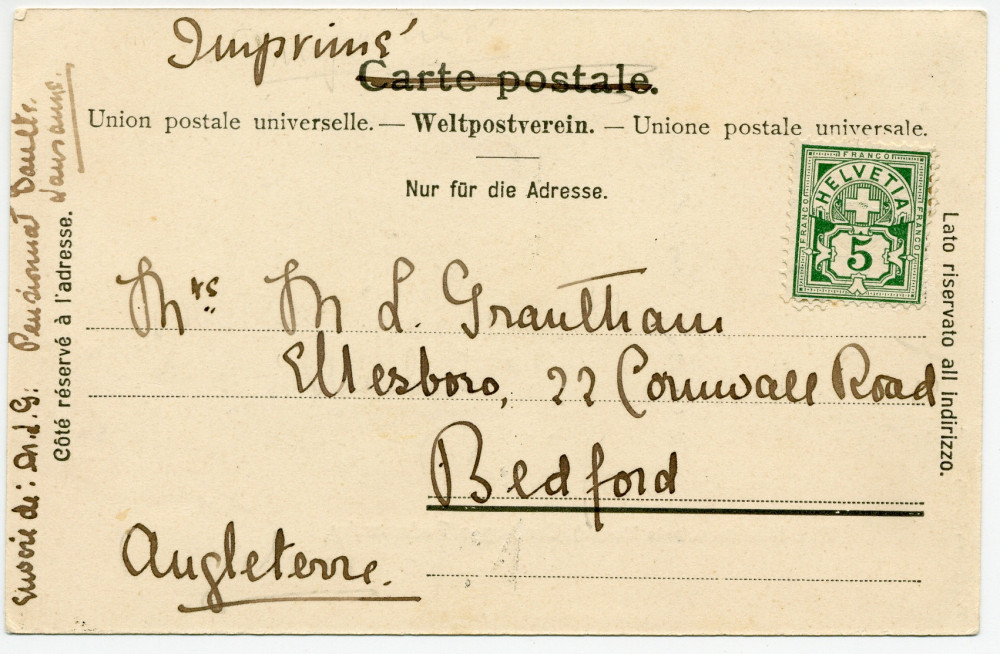 Imprimé
Carte postale.
Union postale universelle. — Weltpostverein. — Unione postale universale.
Nur für die Adresse.
FRANCO
HELVETIA
FRANCO
FRANCO
5
Mrs. M L. Grantham
Ellesboro, 22 Cornwall Road
Bedford
Angleterre.
Côté réservé à l'adresse.
Lato riservato all indirizzo.
Envoie de: M.L.G: Pensionnat
Lausanne.